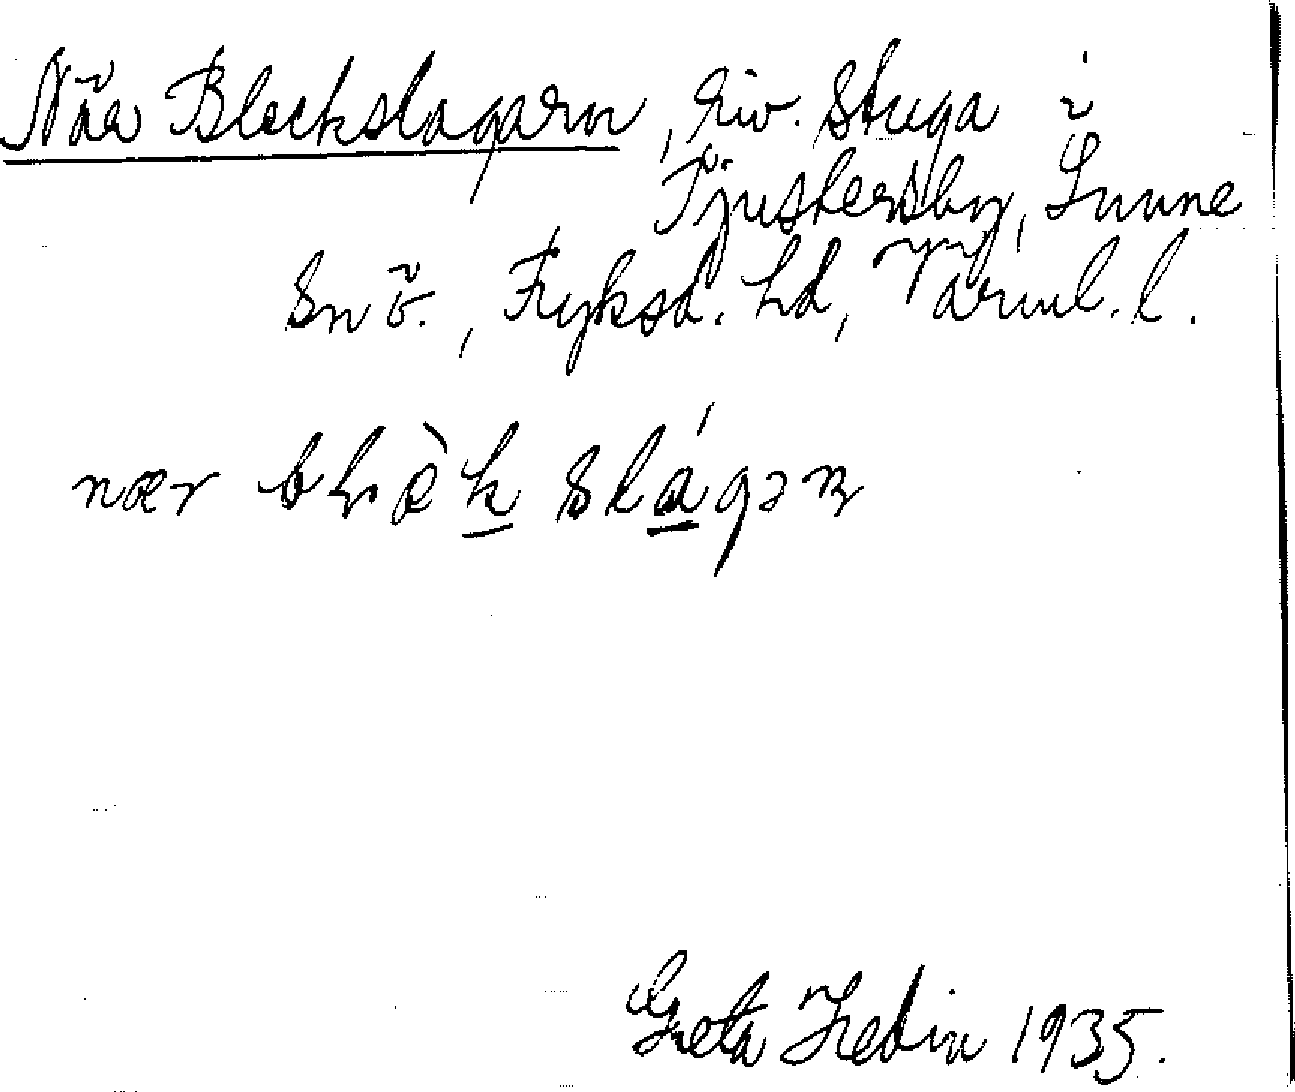 När Bleckslagarn, riv. stuga i
Tjustersby, Sunne
snö., Fryksd. hd, Värml. l.
nær blèk slágən
Greta Hedin 1935.